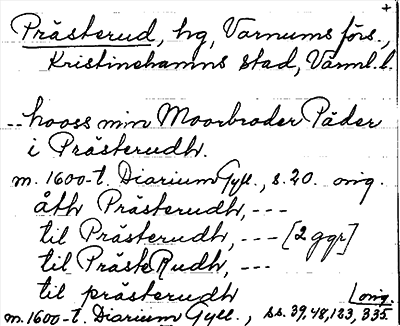 +
Prästerud, hg, Varnums förs.,
Kristinehamns stad, Värml. l.
--hooss min Moorbroder Päder
i Prästerudh.
m. 1600-t. Diarium Gyll., s. 20. orig.
åth Prästerudh, ---
til Prästerudh, --- [2 ggr]
til PrästeRudh, ---
til prästerudh
m. 1600-t. Diarium Gyll., ss. 39, 48, 123, 335. orig.